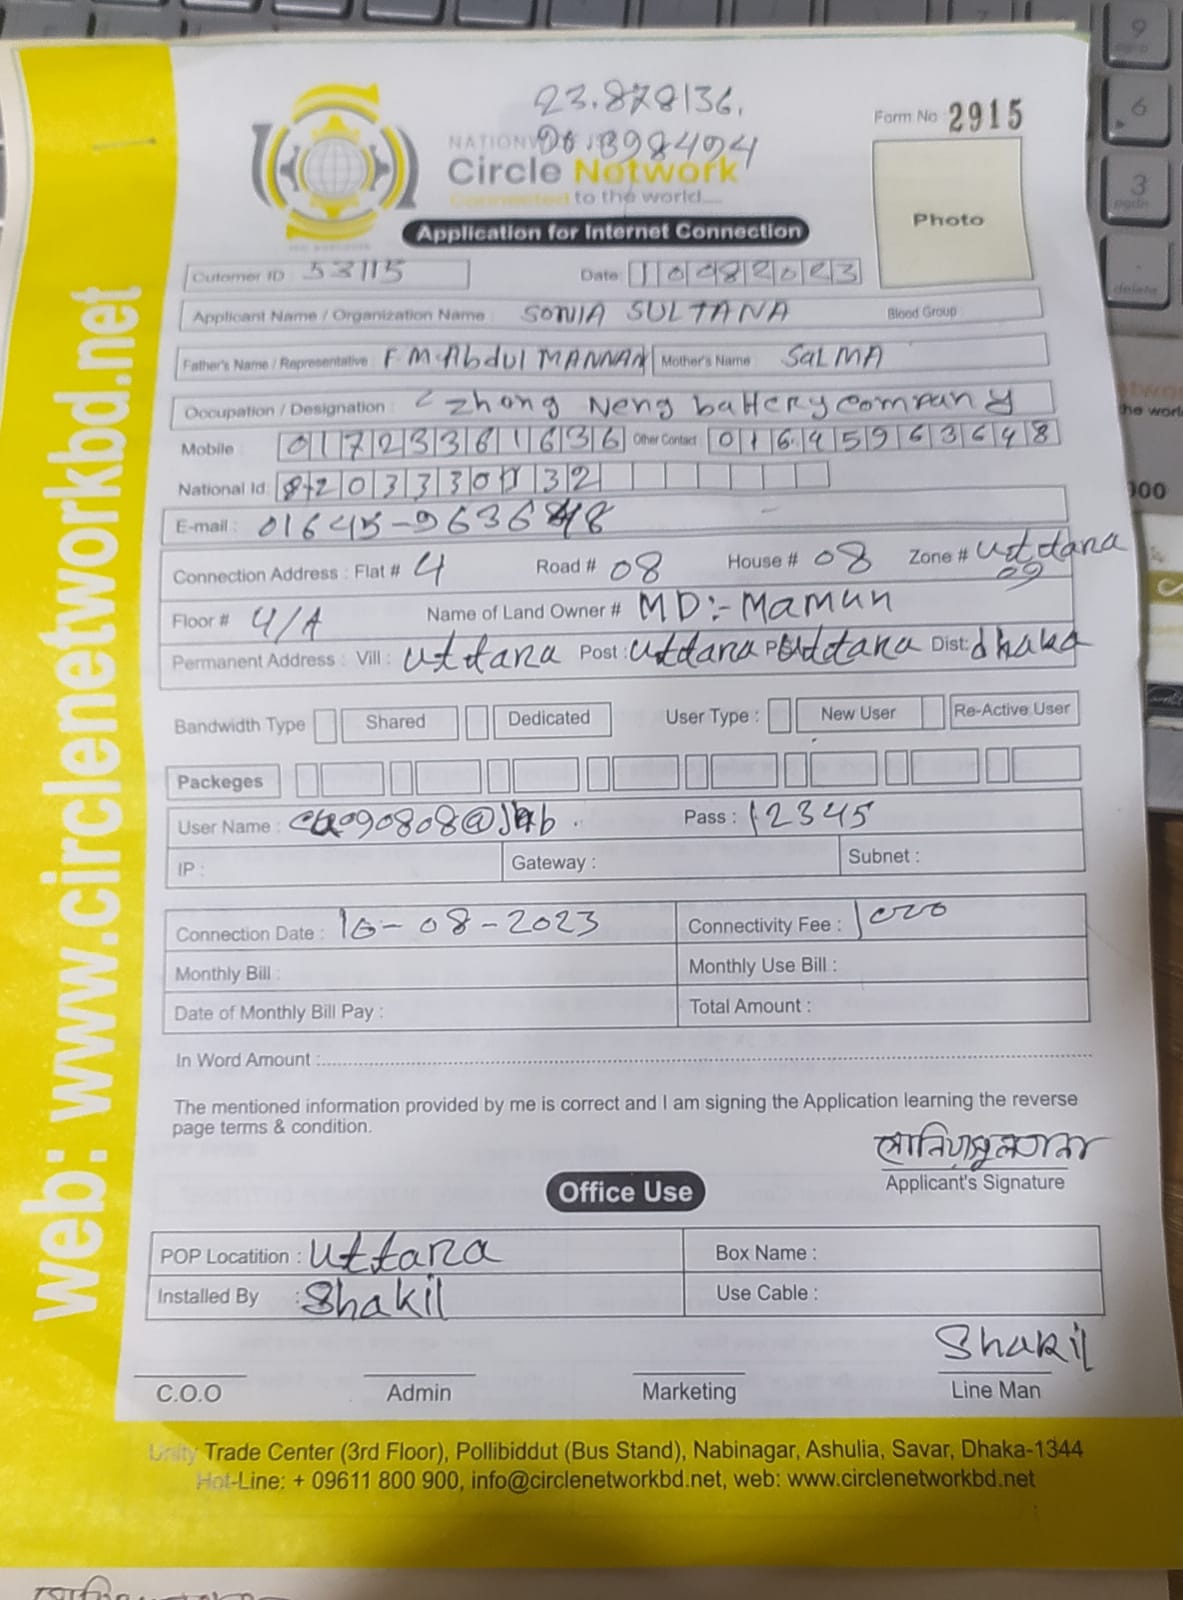 23.878136,
90.398404
Form No 2915
NATIONWIDE
Circle Network
Connected to the world....
Photo
Application for Internet Connection
Cutomer ID 53115 Date: 10082023
Applicant Name / Organization Name : SONIA SULTANA Blood Group
Father's Name / Representative F.M.Abdul MANNAN Mother's Name SaLMA
Occupation / Designation : Zhong Neng battery company
Mobile : 01723361636 Other Contact 01645963648
National Id: 
E-mail : 01645-963648
Connection Address : Flat # 4 Road # 08 House # 08 Zone # uttara
09
Floor # 4/A Name of Land Owner # MD:- Mamun
Permanent Address : Vill : uttara Post : uttara PS uttara Dist: dhaka
Bandwidth Type Shared Dedicated User Type : New User Re-Active User
Packeges
User Name : Pass : 12345
IP : Gateway : Subnet :
Connection Date : 10-08-2023 Connectivity Fee : 1000
Monthly Bill : Monthly Use Bill :
Date of Monthly Bill Pay : Total Amount :
In Word Amount :
The mentioned information provided by me is correct and I am signing the Application learning the reverse
page terms & condition.
সোনিয়া সুলতানা
Applicant's Signature
Office Use
POP Locatition : uttara Box Name :
Installed By : Shakil Use Cable :
Shakil
C.O.O Admin Marketing Line Man
Unity Trade Center (3rd Floor), Pollibiddut (Bus Stand), Nabinagar, Ashulia, Savar, Dhaka-1344
Hot-Line: + 09611 800 900, info@circlenetworkbd.net, web: www.circlenetworkbd.net
web: www.circlenetworkbd.net